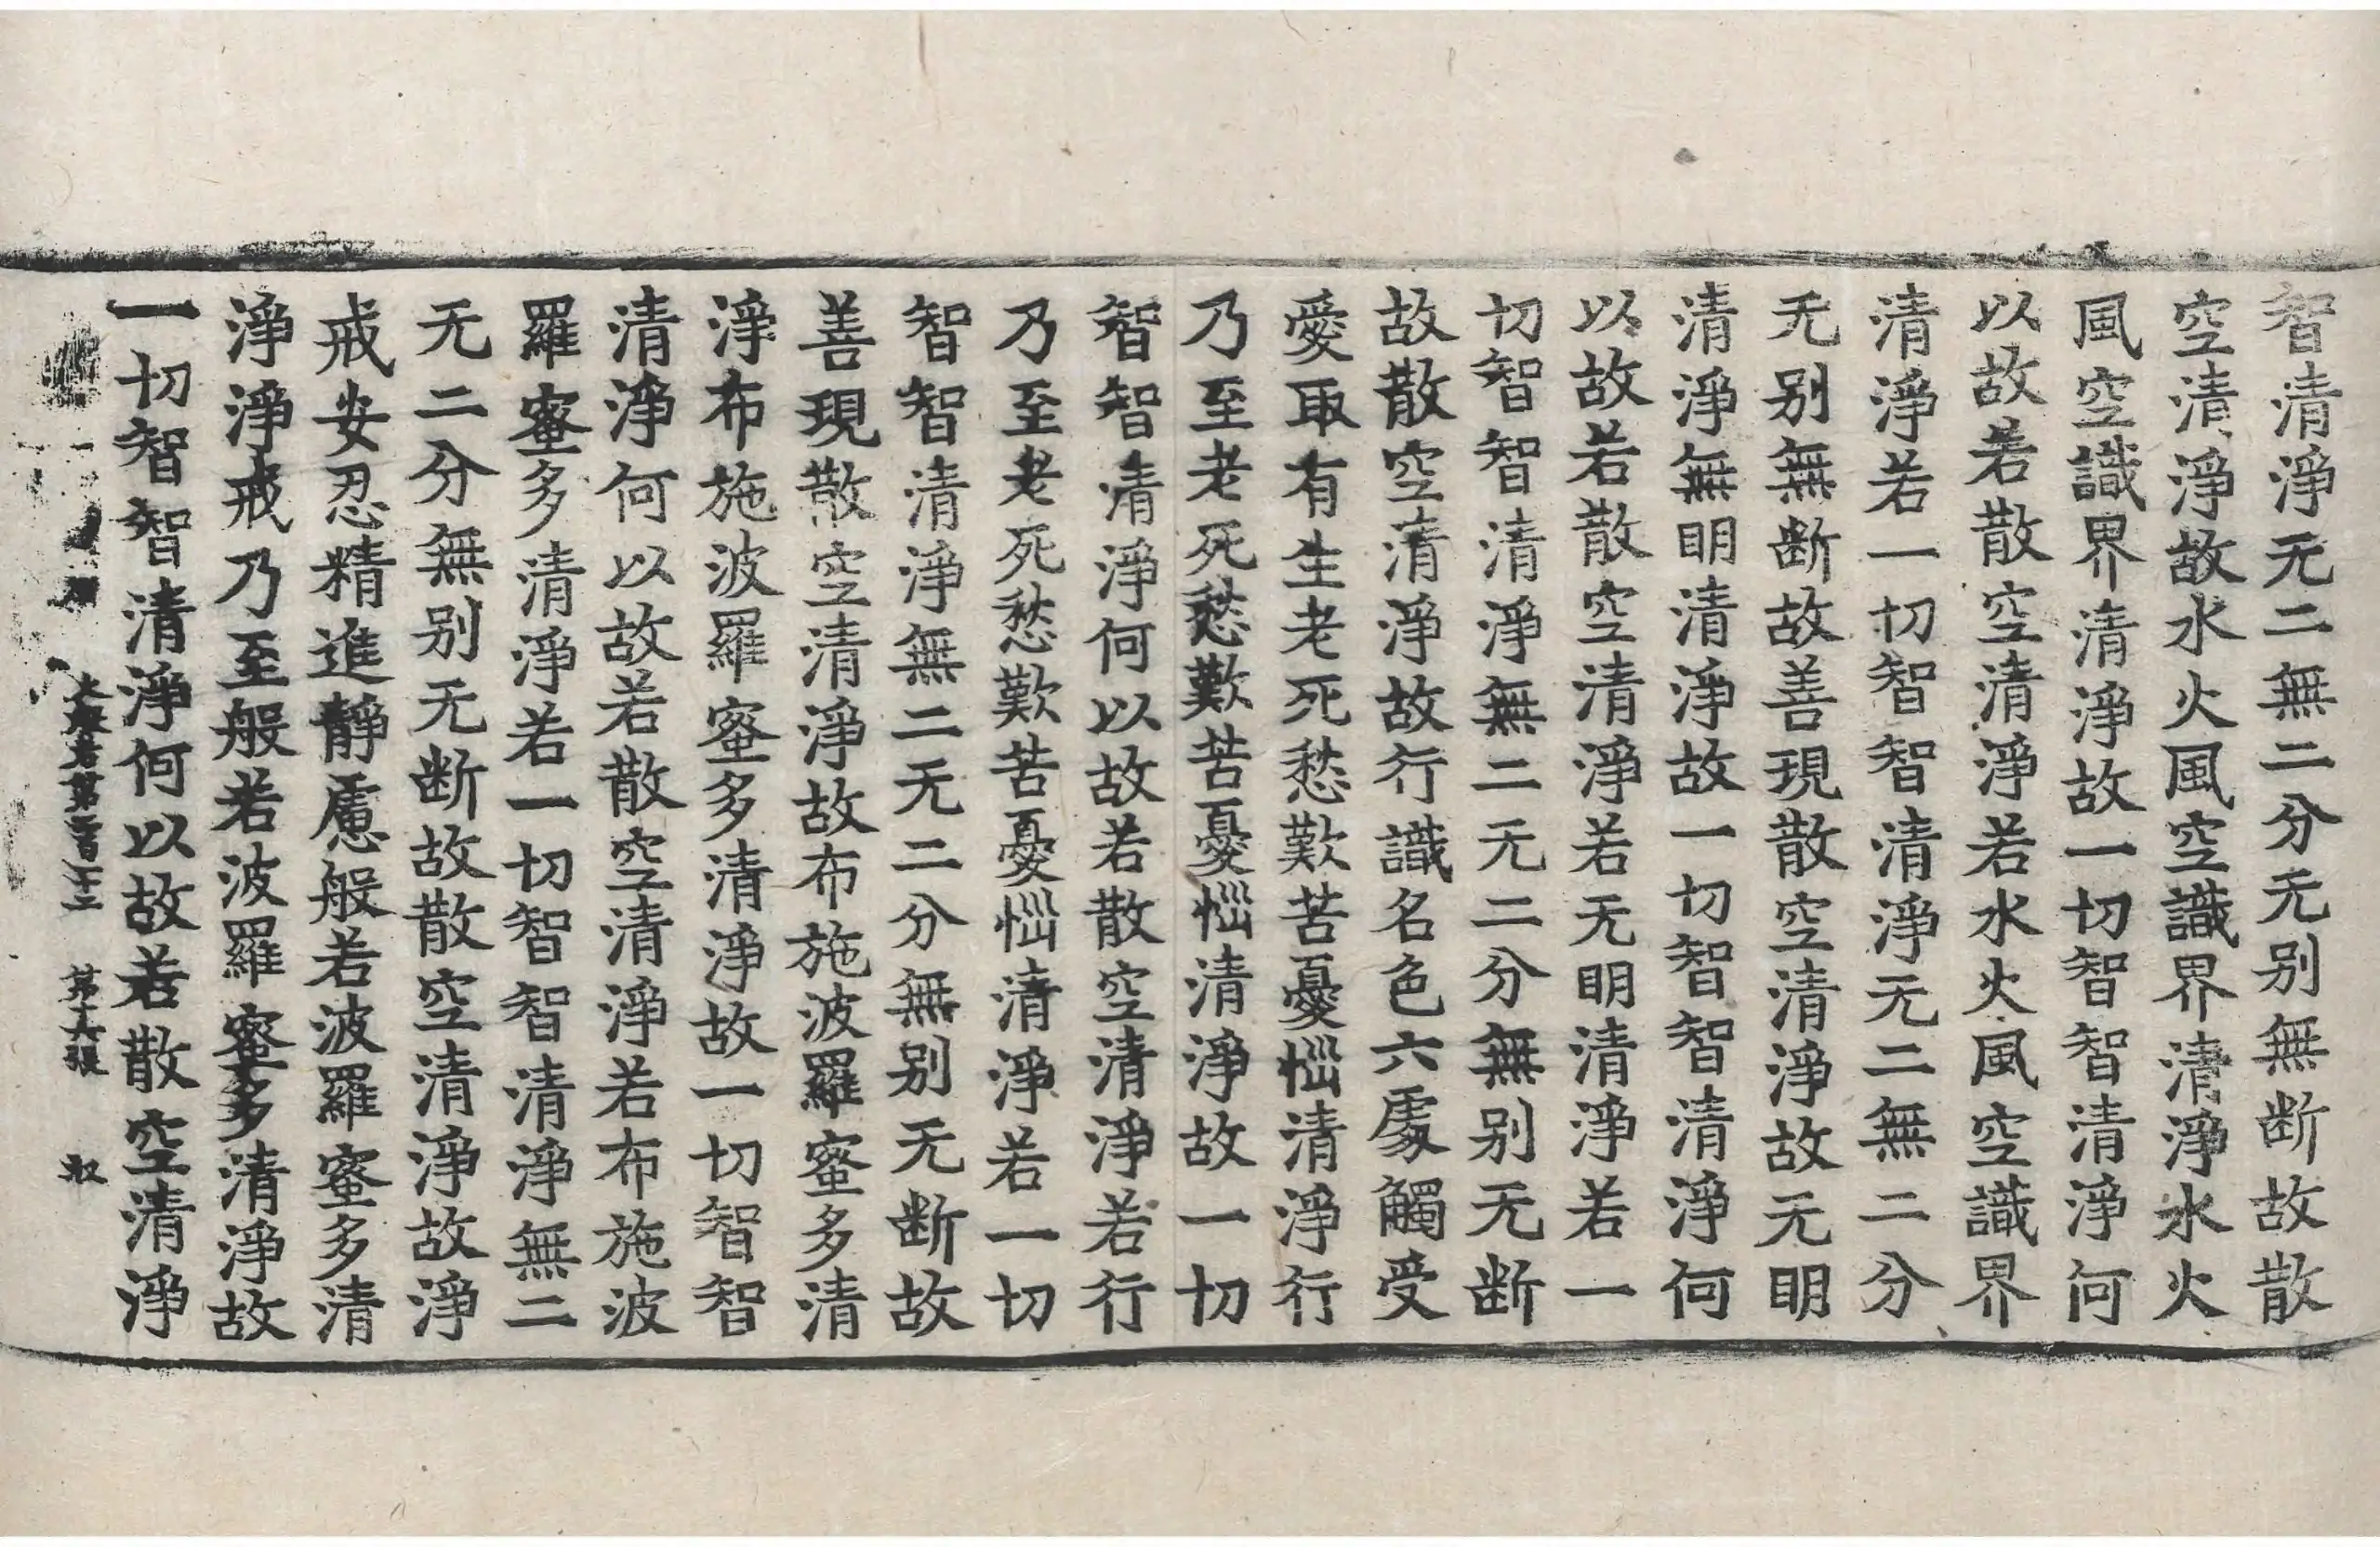 智清淨无二無二分无别無断故散
空清淨故水火風空識界清淨水火
風空識界清淨故一切智智清淨何
以故若散空清淨若水火風空識界
清淨若一切智智清淨无二無二分
无别無断故善現散空清淨故无明
清淨無明清淨故一切智智清淨何
以故若散空清淨若无明清淨若一
切智智清淨無二无二分無别无断
故散空清淨故行識名色六處觸受
愛取有生老死愁歎苦憂惱清淨行
乃至老死愁歎苦憂惱清淨故一切
智智清淨何以故若散空清淨若行
乃至老死愁歎苦憂惱清淨若一切
智智清淨無二无二分無别无断故
善現散空清淨故布施波羅蜜多清
淨布施波羅蜜多清淨故一切智智
清淨何以故若散空清淨若布施波
羅蜜多清淨若一切智智清淨無二
无二分無别无断故散空清淨故淨
戒安忍精進靜慮般若波羅蜜多清
淨淨戒乃至般若波羅蜜多清淨故
一切智智清淨何以故若散空清淨
大般若第二百十三 第十六張